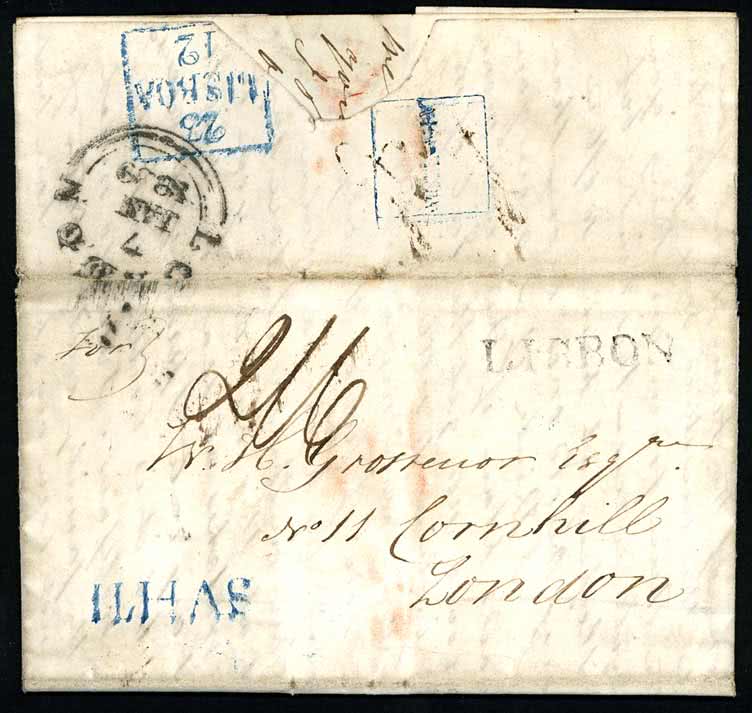 23
LISBOA
12
LONDON
7
JAN
LISBON
2/6
W. H. Grosvenor Esqre.
No 11 Cornhill
London
ILHAS